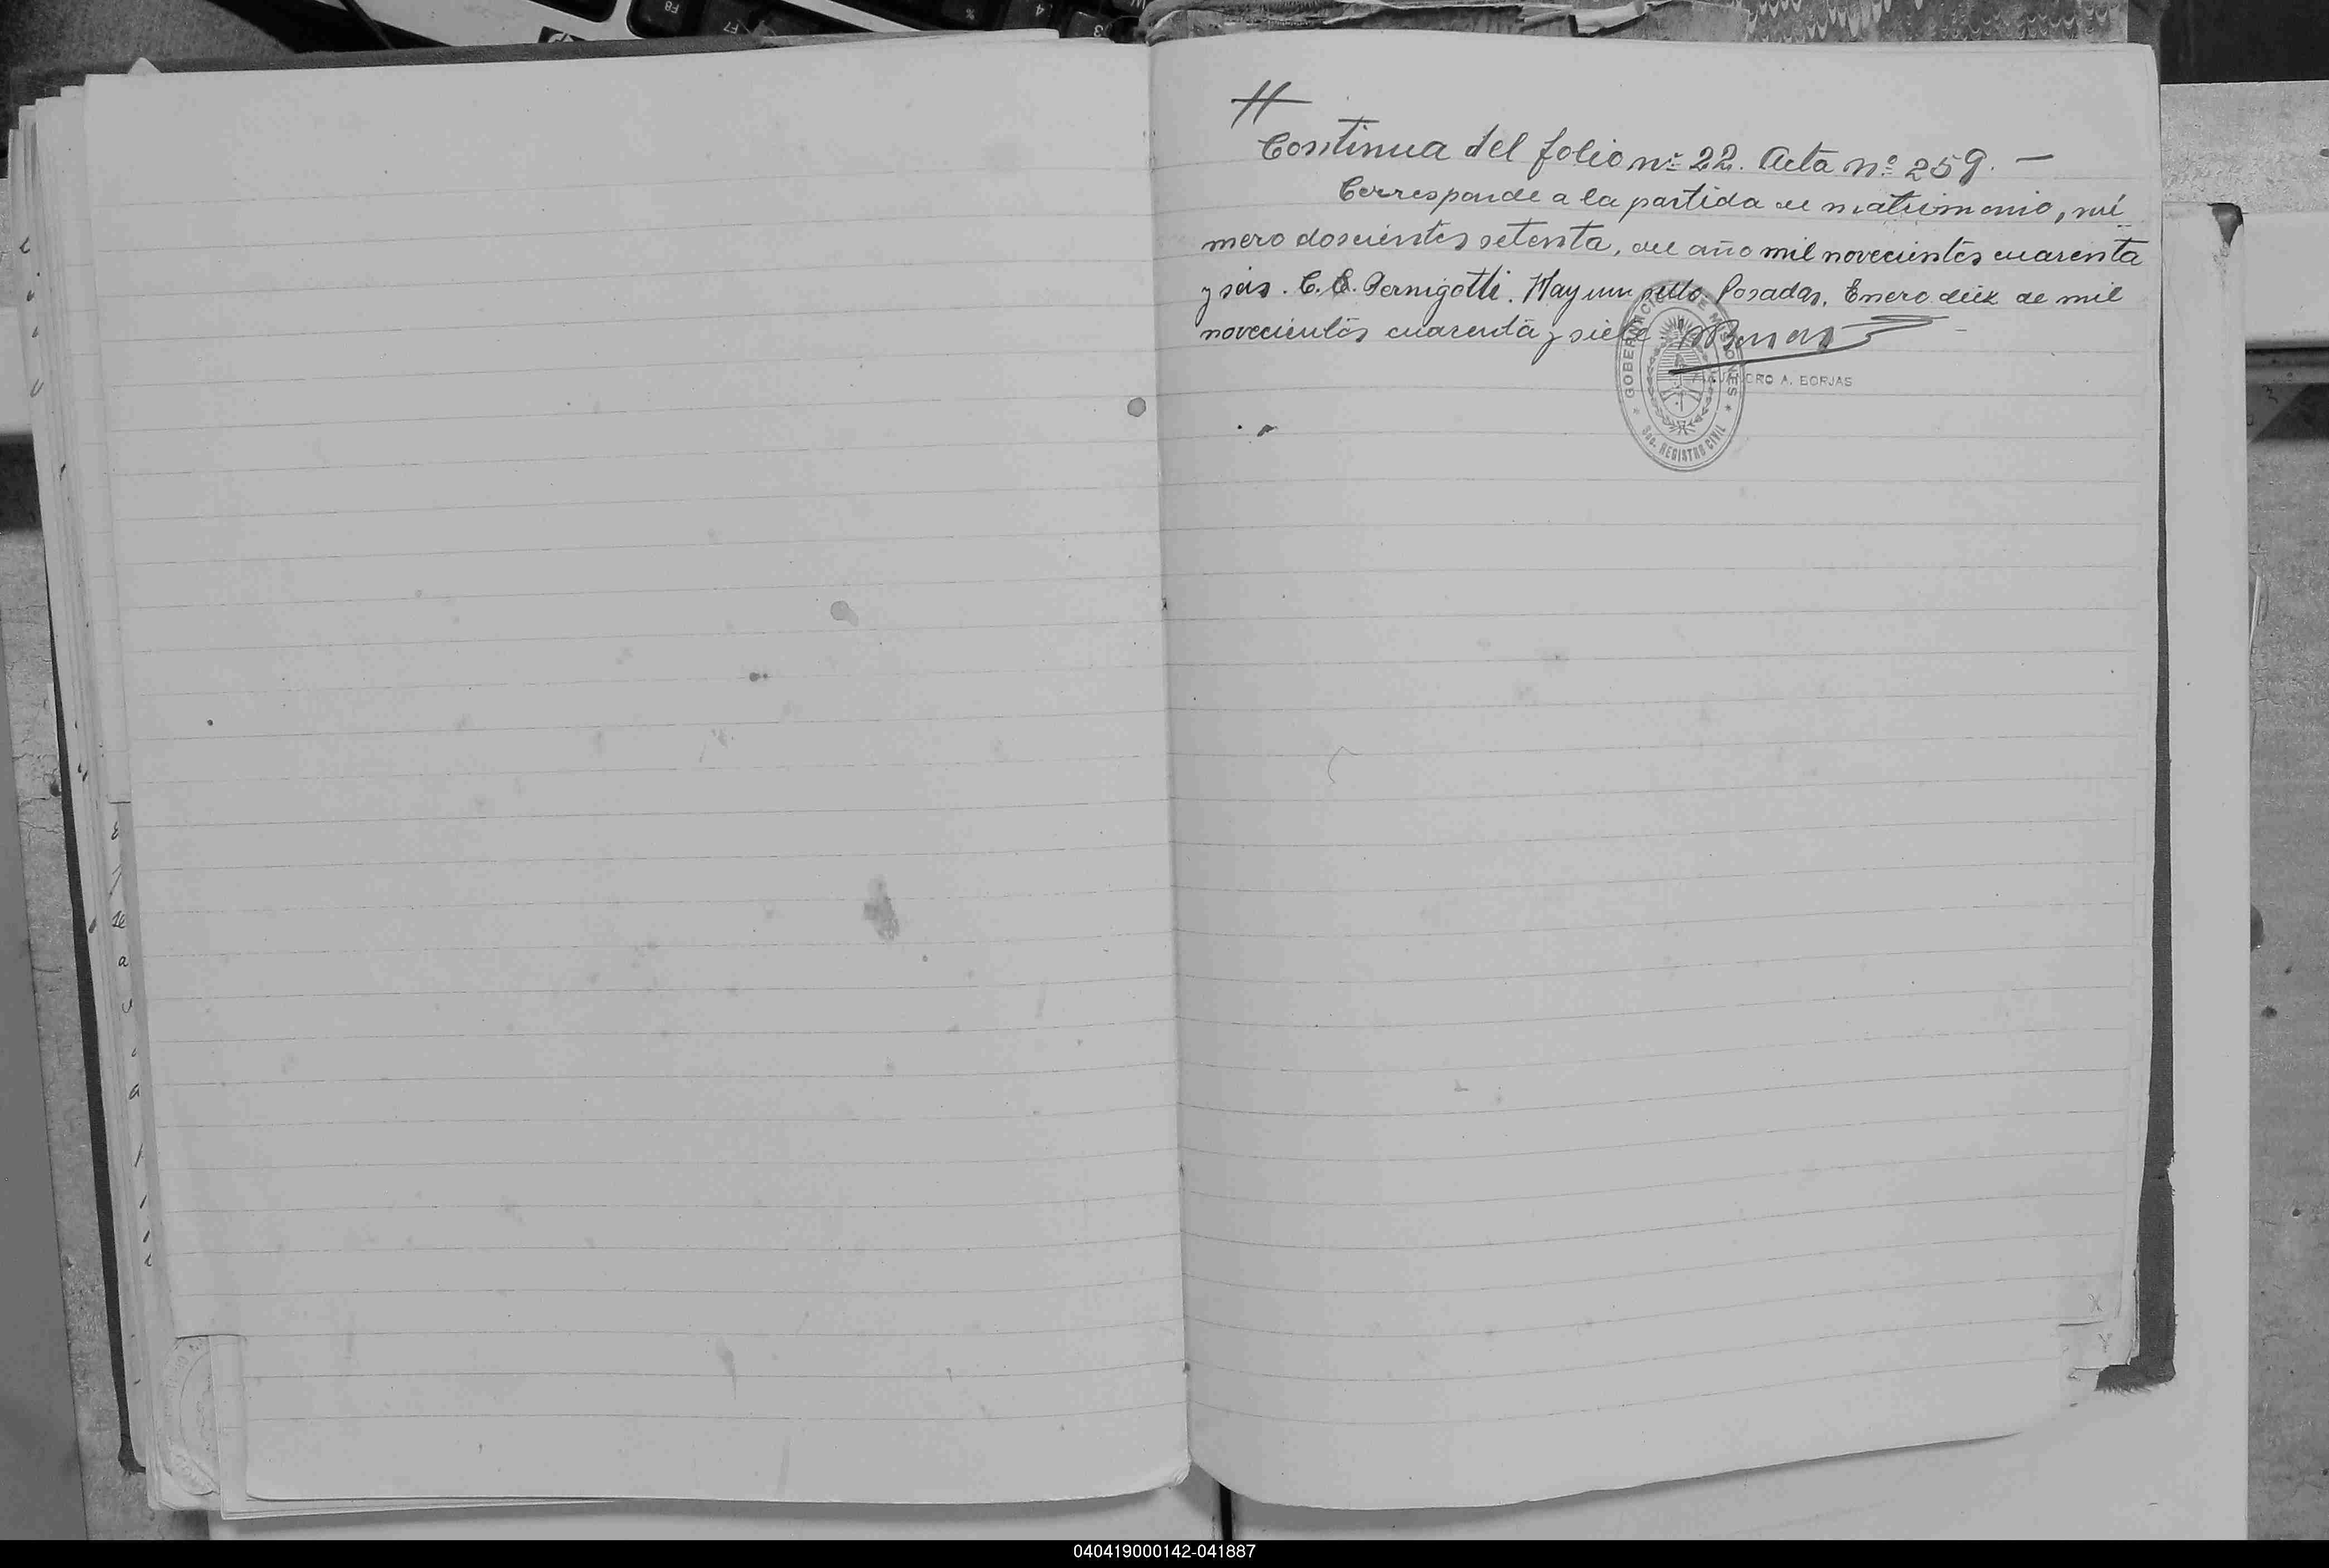 Continua del folio nº 22. Acta nº 259. —
Corresponde a la partida de matrimonio, nú
mero doscientos setenta, del año mil novecientos cuarenta
y seis. C. C. Pernigotti. Hay un sello. Posadas, Enero diez de mil
novecientos cuarenta y siete
GOBERNACION DE MISIONES
Sec. REGISTRO CIVIL
ALEJANDRO A. BORJAS
040419000142-041887